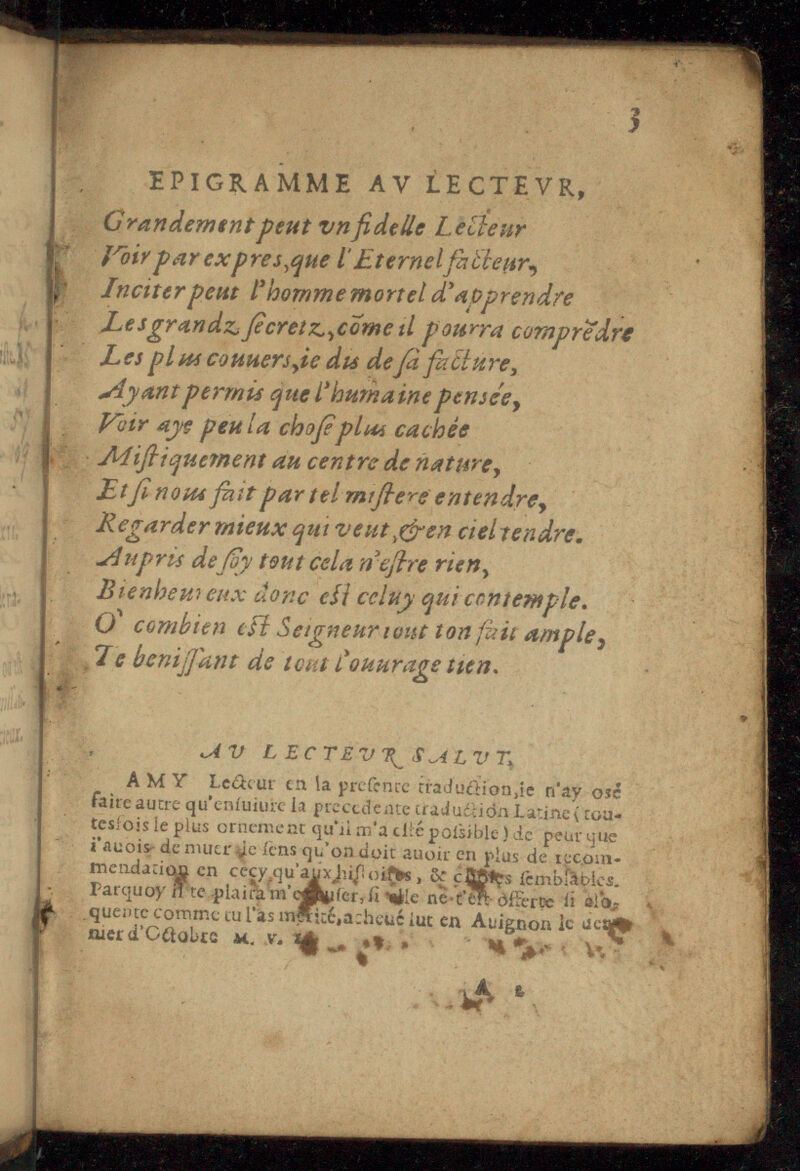 3
EPIGRAMME AV LECTEVR,
Grandement peut vn fidelle Lecteur
Voir par expres,que l'Eternel facteur,
Inciter peut l'homme mortel d'apprendre
Les grandz secretz,cõme il pourra comprẽdre
Les plus couuers,ie dis de sa facture,
Ayant permis que l'humaine pensée,
Voir aye peu la chose plus cachée
Mistiquement au centre de nature,
Et si nous fait par tel mistere entendre,
Regarder mieux qui veut,& en ciel tendre.
Aupris de soy tout cela n'estre rien,
Bienheureux donc est celuy qui contemple.
O' combien est Seigneur tout ton fait ample,
Te benissant de tout l'ouurage tien.
AV LECTEVR SALVT,
AMY Lecteur en la presente traduction,ie n'ay osé
faire autre qu'ensuiure la precedente traduction Latine (tou-
tesfois le plus ornement qu'il m'a esté possible) de peur que
i'auois de muer le sens qu'on doit auoir en plus de recom-
mendation en cecy,qu'aux histoires, & semblables.
Parquoy te plaira m'excuser, si elle ne t'est offerte si elo-
quente comme tu l'as merité,acheué fut en Auignon le
nier d'Octobre M. V.
A